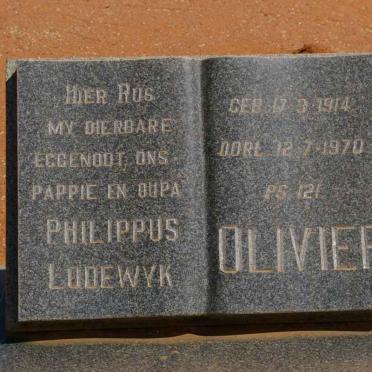 HIER RUS
MY DIERBARE
EGGENOOT, ONS
PAPPIE EN OUPA
PHILIPPUS
LODEWYK
GEB. 17·3·1914
OORL. 12·7·1970
PS. 121
OLIVIER